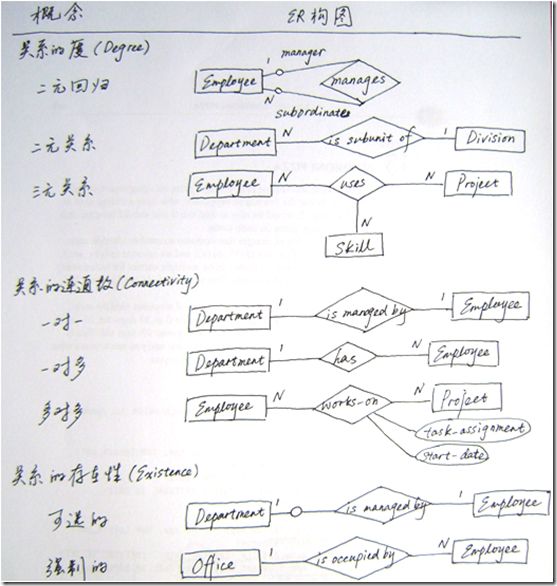 概念 ER构图
关系的度(Degree)
二元回归
1 manager
Employee manages
N subordinate
二元关系
Department N is subunit of 1 Division
三元关系
Employee N uses N Project
N
Skill
关系的连通数(Connectivity)
一对一
Department 1 is managed by 1 Employee
一对多
Department 1 has N Employee
多对多
Employee N works-on N Project
task-assignment
start-date
关系的存在性(Existence)
可选的
Department 1 is managed by 1 Employee
强制的
Office 1 is occupied by N Employee